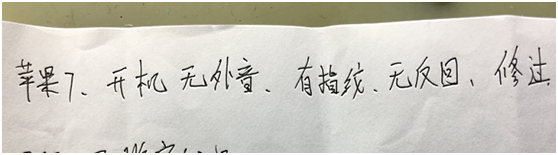 苹果7、开机 无外音、有指纹、无反回、修过